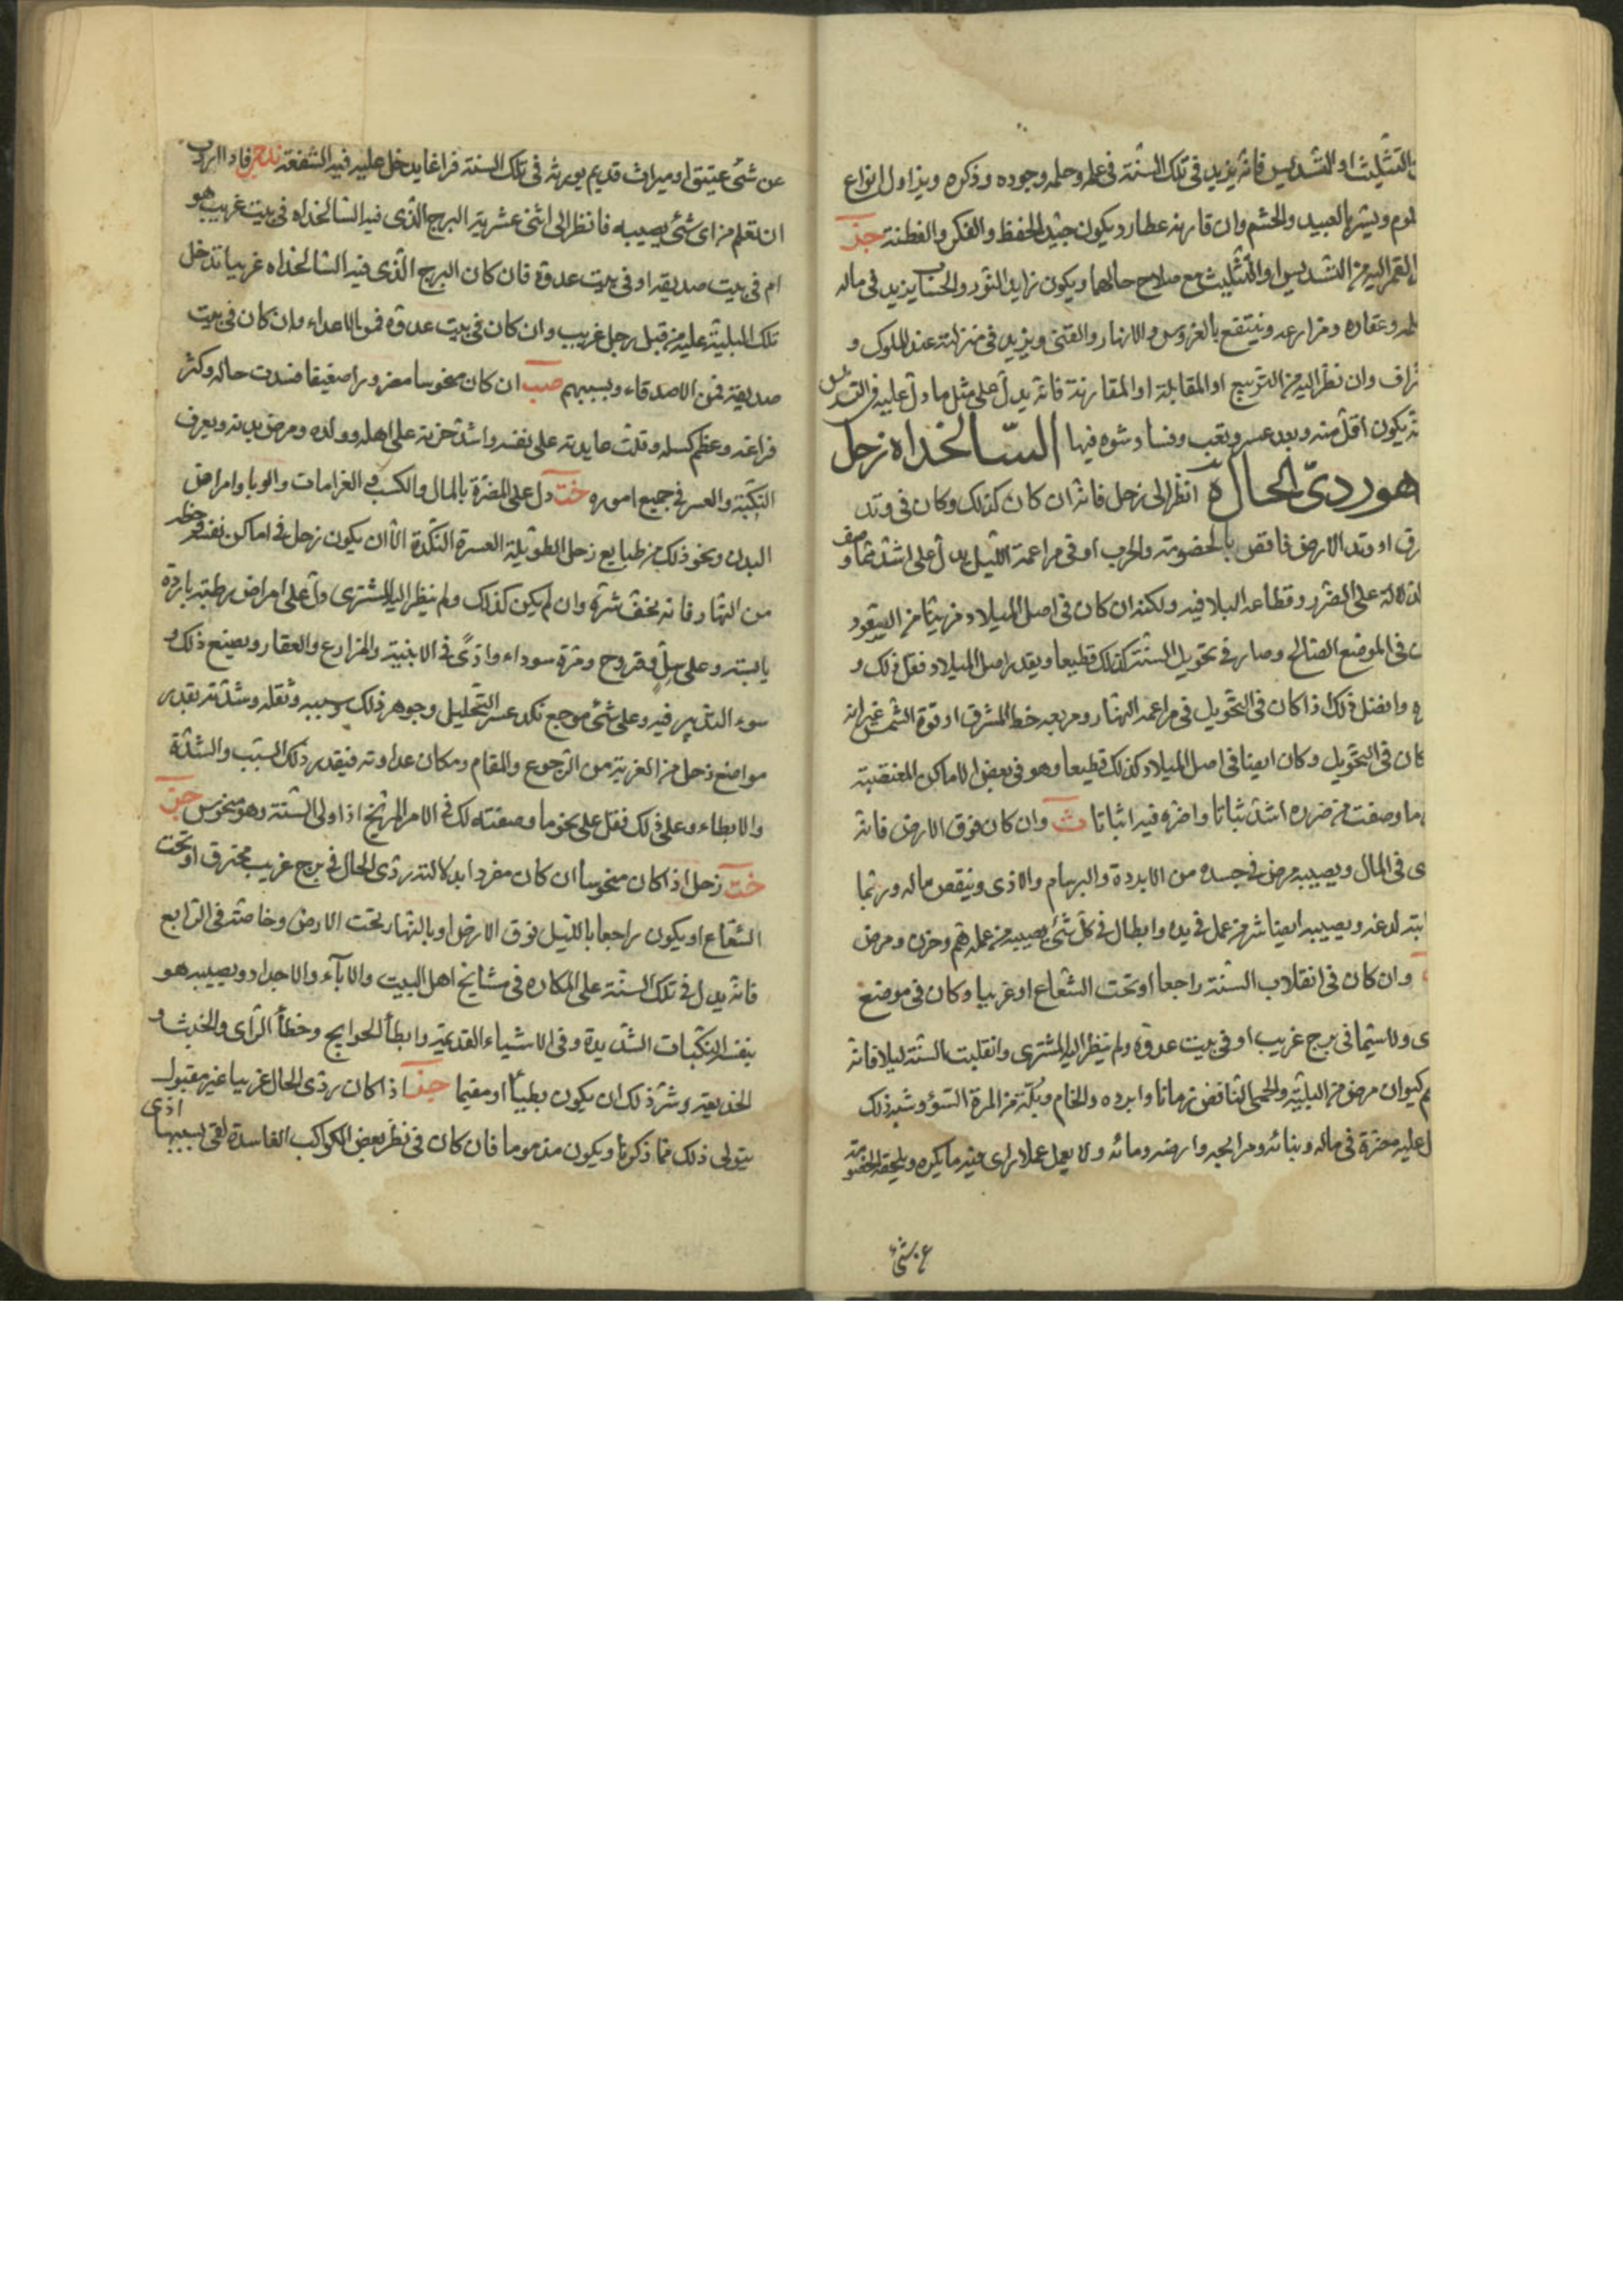 بالتثليث او التسديس فانه يزيد في تلك السنة في علمه وحلمه وجوده وذكره ويزاول انواع
لوم ويشترى العبيد والحشم وان قارنه عطارد يكون جيد الحفظ والفكر والفطنة
القمر اليه من التسديس او التثليث مع صلاح حالهما ويكون زايد النور والحساب يزيد في ماله
وعقاره ومزارعه وينتفع بالغروس والانهار والقنى ويزيد في منزلته عند الملوك و
راف وان نظر اليه من التربيع او المقابلة او المقارنة فانه يدل على مثل ما دل عليه في التسديس
يكون اقل منه وبعد عسر وتعب وفساد شوه فيها السالخداه زحل
هو ردىّ الحال انظر الى زحل فانه ان كان كذلك وكان في وتد
رق او وتد الارض فاقض بالخصومة والحرب او في مراعمة الليل يدل على اشد مما وصف
الدلالة على الضرر وقطاعه البلا فيه ولكنه ان كان في اصل الميلاد مزينا من السعود
في الموضع الصالح وصار في تحويل السنة كذلك قطيعا وبقدر اصل الميلاد فقل ذلك و
وافضل ذلك اذا كان في التحويل في مراعمه النهار ومربعه خط المشرق او قوة الشمس غير انه
كان في التحويل وكان ايضا في اصل الميلاد كذلك قطيعا وهو في بعض الاماكن المغتضبة
ما وصفت من ضرره اشد ثباتا واضره فيه اثباتا وان كان فوق الارض فانه
ى في المال ويصيبه مرض في جسده من الابردة والبرسام والاذى وينقص ماله وربما
ابته لدغه ويصيبه ايضا شر من عمل في يده وابطال في كل شئ يصيبه من عمله وهم وحزن ومرض
وان كان في انقلاب السنة راجعا او تحت الشعاع او غربيا وكان في موضع
ى ولاسيما في برج غريب او في بيت عدوه ولم ينظر اليه المشترى وانقلبت السنة ليلا فانه
كيوان مرض من البلية والحمى النافض زمانا وابرده والخام وبكة من المرة السوء وشبه ذلك
ل عليه مضرة في ماله وبنائه ومرابحه وارضه ومائه ولا يعمل عملا الا راى فيه ما يكره ويلحقه الخصومة
عن شئ
عن شئ عتيق او ميراث قديم يورثه في تلك السنة فراغا يدخل عليه فيه الشفعة فاذا اردت
ان تعلم من اى شئ يصيبه فانظر الى اثنى عشرية البرج الذى فيه السالخداه في بيت غريب هو
ام في بيت صديقه او في بيت عدوه فان كان البرج الذى فيه السالخداه غريبا تدخل
تلك البلية عليه من قبل رجل غريب وان كان في بيت عدوه فمن الاعداء وان كان في بيت
صديقه فمن الاصدقاء وبسببهم ان كان منحوسا مضرورا ضعيفا فسدت حاله وكثر
فراغه وعظم كسله وقلت عايدته على نفسه واشد حزنه على اهله وولده ومرض بدنه ويعرف
النكبة والعسر في جميع اموره دل على المضرة بالمال والكسب في الغرامات والوبا وامراض
البدن ونحو ذلك من طبايع زحل الطويلة العسرة النكدة الا ان يكون زحل في اماكن نفسه وحظه
من النهار فانه يخف شره وان لم يكن كذلك ولم ينظر اليه المشترى دل على امراض رطبة باردة
يابسة وعلى سل وقروح ومرة سوداء واذى في الابنية والمزارع والعقار ويصنع ذلك و
سوء التدبير فيه وعلى شئ موجع نكد عسر التحليل وجوهر ذلك وسببه وثقله وشدته بقدر
مواضع زحل من الغربة من الرجوع والمقام ومكان عداوته فيقدر ذلك السبب والشدة
والابطاء وعلى ذلك فقل على نحو ما وصفته لك في الامر المريخ اذا ولى السنة وهو منحوس
زحل اذا كان منحوسا ان كان مفردا بدلالته ردى الحال في برج غريب محترق او تحت
الشعاع او يكون راجعا بالليل فوق الارض او بالنهار تحت الارض وخاصة في الرابع
فانه يدل في تلك السنة على المكاره في مشايخ اهل البيت والاباء والاجداد ويصيبه هو
بنفسه النكبات الشديدة وفي الاشياء القديمة وابطأ الحوايج وخطأ الراى والخبث و
الخديعة وشر ذلك ان يكون بطيئا او مقيما اذا كان ردى الحال غربيا غير مقبول
يتولى ذلك مما ذكرنا ويكون مذموما فان كان في نظر بعض الكواكب الفاسدة لقى بسببها اذى